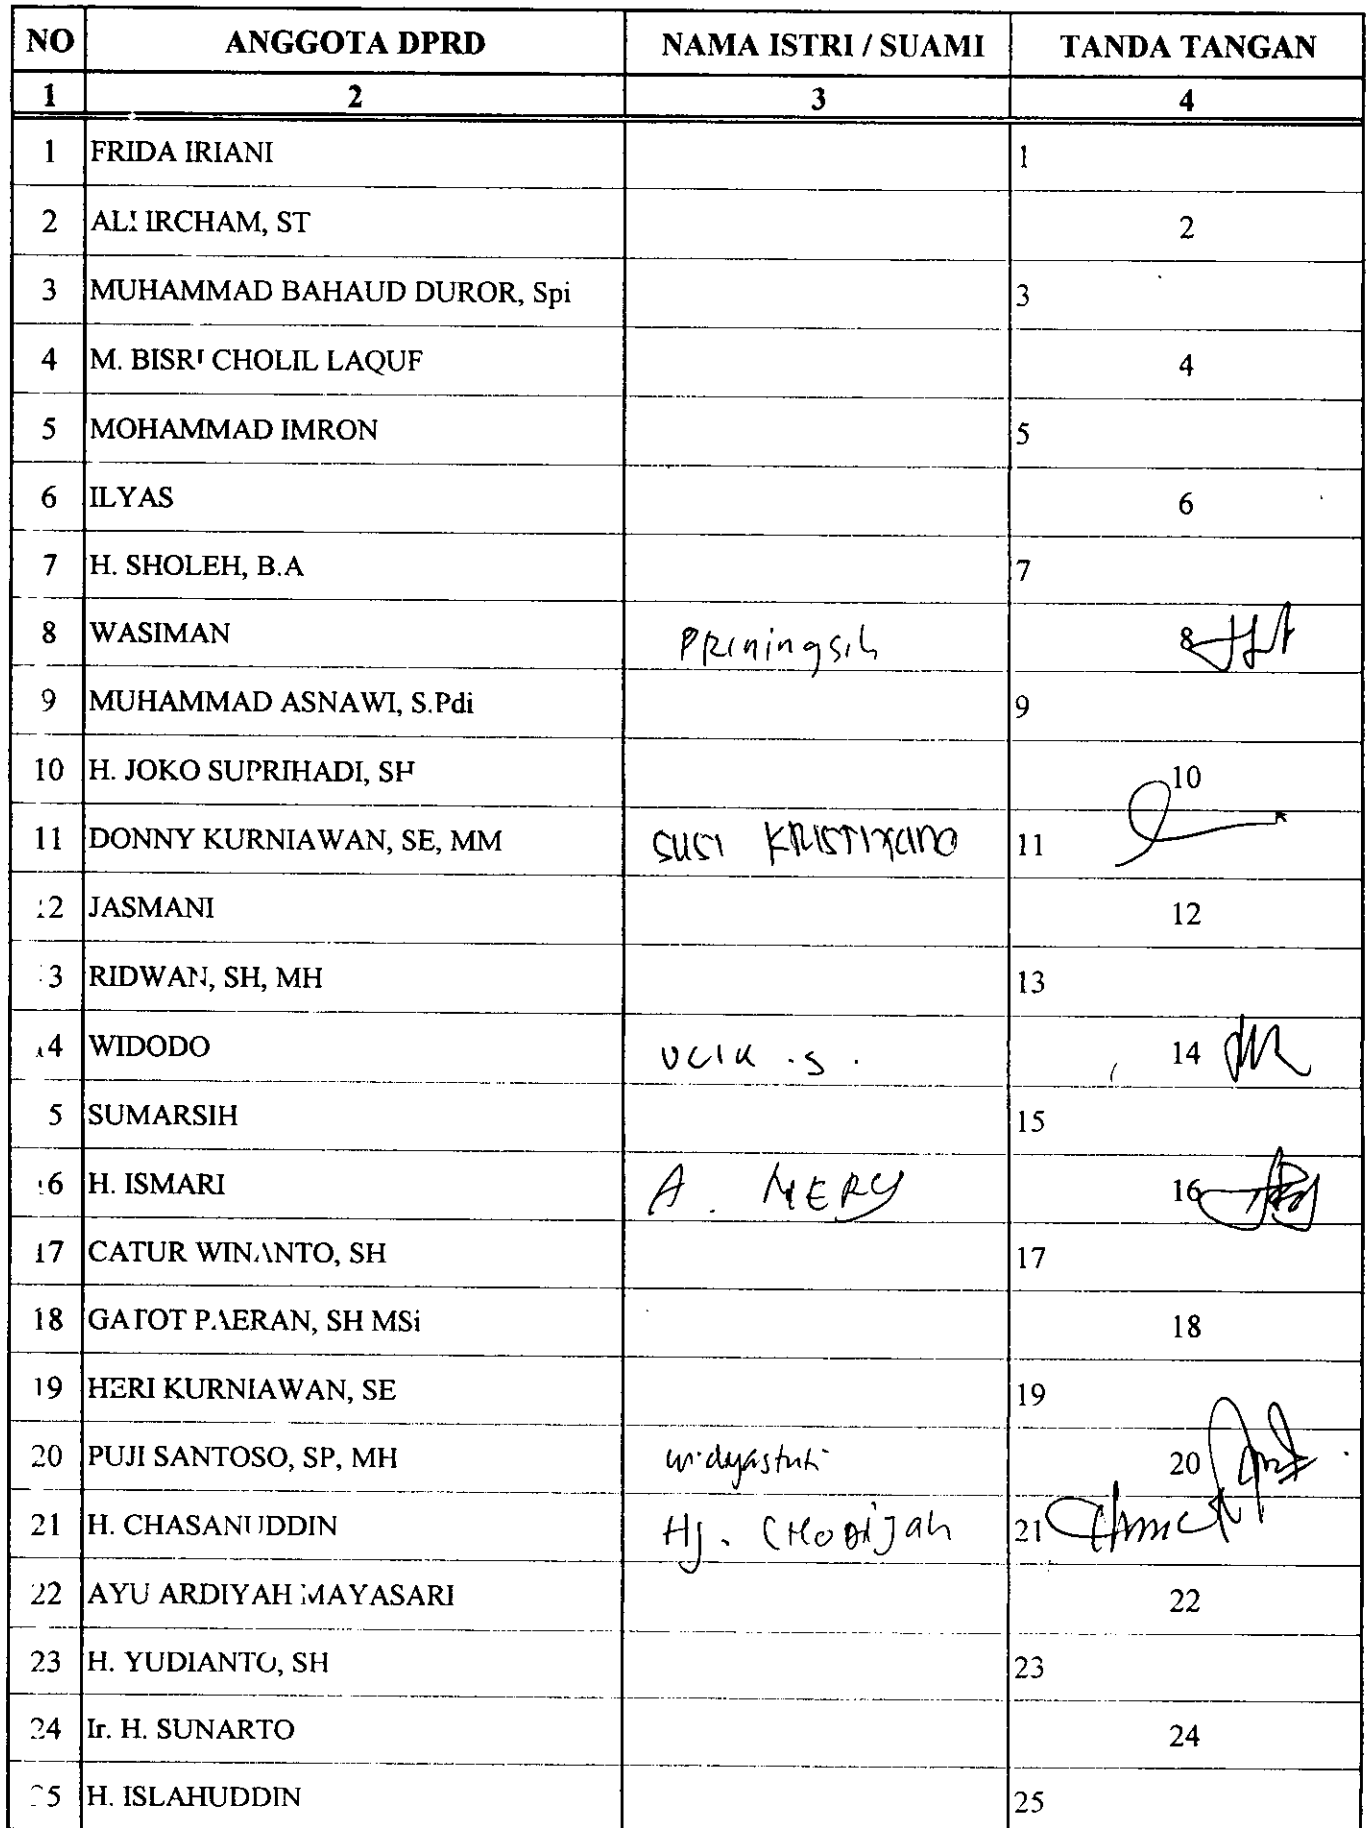 NO ANGGOTA DPRD NAMA ISTRI / SUAMI TANDA TANGAN
1 2 3 4
1 FRIDA IRIANI 1
2 ALI IRCHAM, ST 2
3 MUHAMMAD BAHAUD DUROR, Spi 3
4 M. BISRI CHOLIL LAQUF 4
5 MOHAMMAD IMRON 5
6 ILYAS 6
7 H. SHOLEH, B.A 7
8 WASIMAN PRiningsih 8
9 MUHAMMAD ASNAWI, S.Pdi 9
10 H. JOKO SUPRIHADI, SH 10
11 DONNY KURNIAWAN, SE, MM SUSI 11
12 JASMANI 12
13 RIDWAN, SH, MH 13
14 WIDODO UCIK .S . 14
15 SUMARSIH 15
16 H. ISMARI A. MERY 16
17 CATUR WINANTO, SH 17
18 GATOT PAERAN, SH MSi 18
19 HERI KURNIAWAN, SE 19
20 PUJI SANTOSO, SP, MH widyastuti 20
21 H. CHASANUDDIN Hj. CHODIJah 21
22 AYU ARDIYAH MAYASARI 22
23 H. YUDIANTO, SH 23
24 Ir. H. SUNARTO 24
25 H. ISLAHUDDIN 25